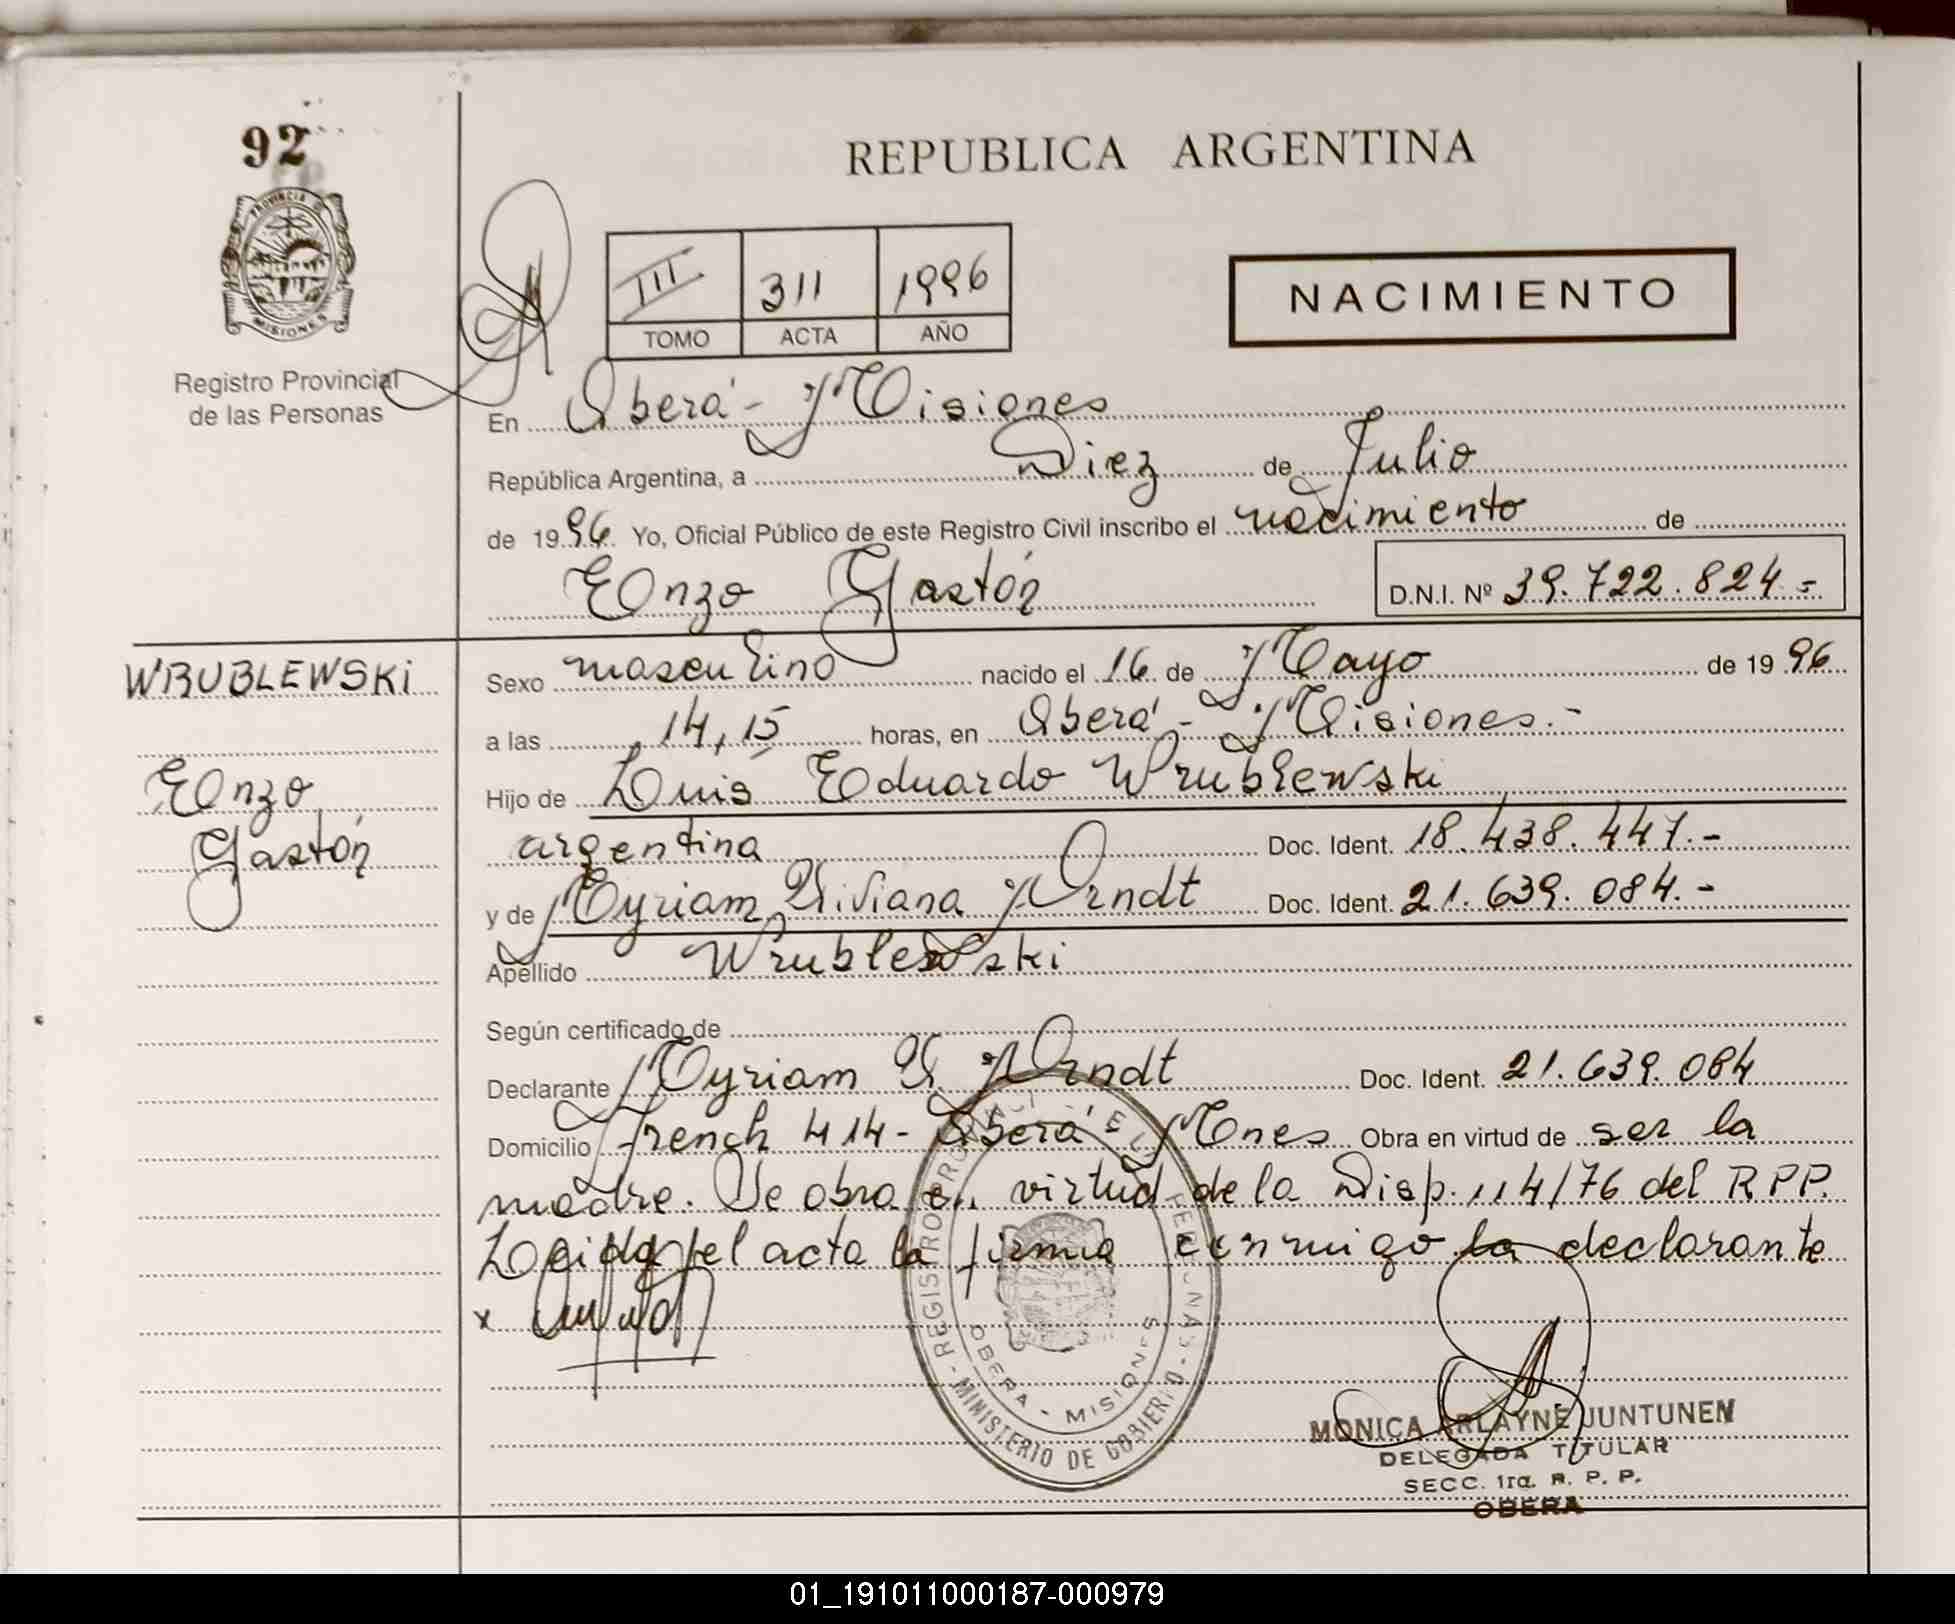 92
REPUBLICA ARGENTINA
PROVINCIA DE
MISIONES
Registro Provincial
de las Personas
III 311 1996
TOMO ACTA AÑO
NACIMIENTO
En Oberá - Misiones
República Argentina, a Diez de Julio
de 1996 Yo, Oficial Público de este Registro Civil inscribo el nacimiento de
Enzo Gastón D.N.I. Nº 39.722.824.-
WRUBLEWSKi
Enzo
Gastón
Sexo masculino nacido el 16 de Mayo de 1996
a las 14,15 horas, en Oberá - Misiones.-
Hijo de Luis Eduardo Wrublewski
argentina Doc. Ident. 18.438.447.-
y de Myriam Viviana Arndt Doc. Ident. 21.639.084.-
Apellido Wrublewski
Según certificado de
Declarante Myriam V. Arndt Doc. Ident. 21.639.084
Domicilio French 414 - Oberá - Mnes Obra en virtud de ser la
madre. Se obra en virtud de la Disp. 114/76 del R.P.P.
Leida el acta la firma conmigo la declarante
x
REGISTRO PROVINCIAL DE LAS PERSONAS - MINISTERIO DE GOBIERNO -
OBERA - MISIONES
MONICA ARLAYNE JUNTUNEN
DELEGADA TITULAR
SECC. 1ra. R. P. P.
OBERA
01_191011000187-000979